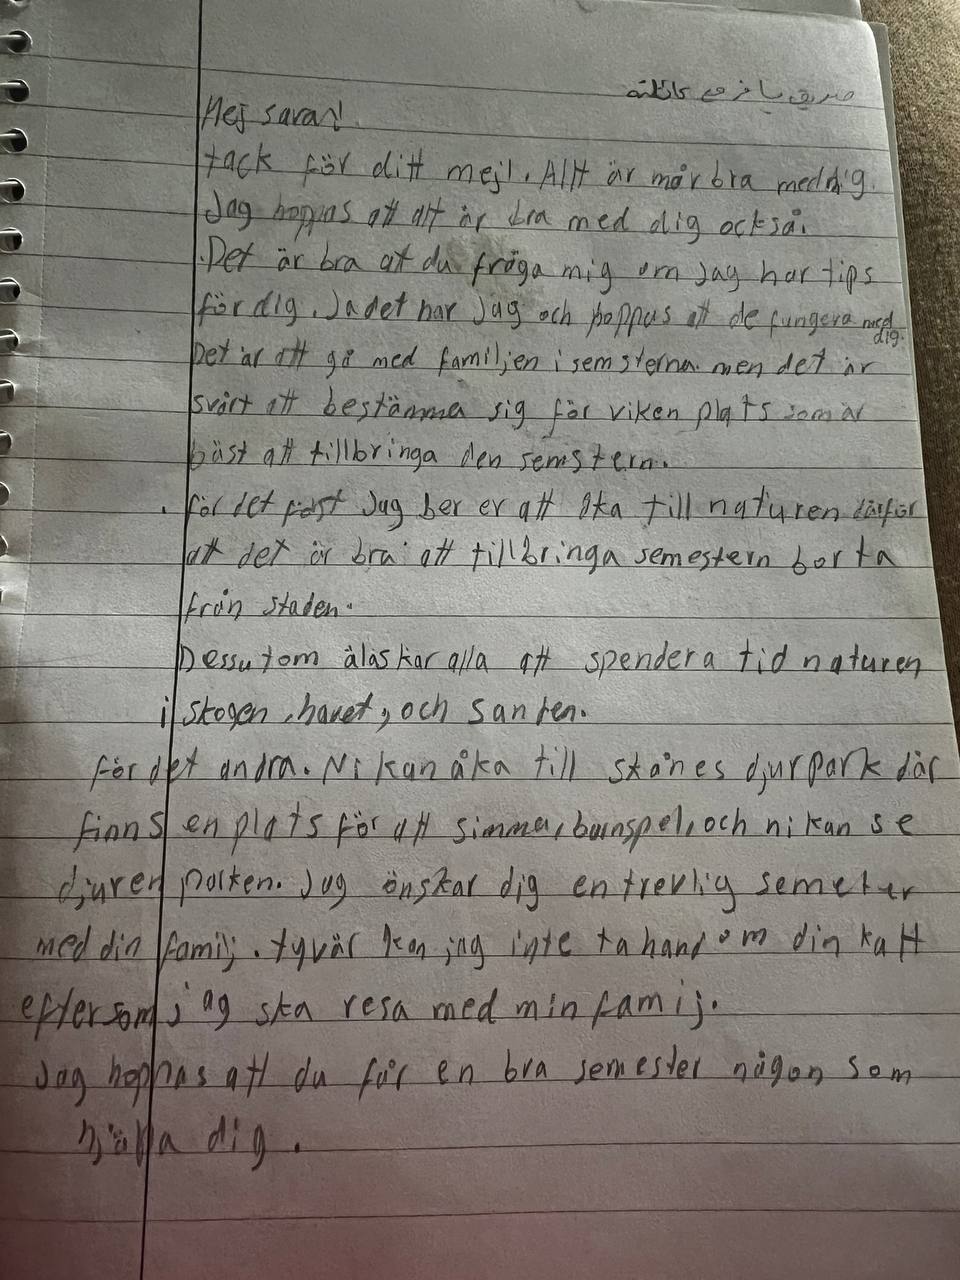 Hej sara!
tack för ditt mejl. Allt är mår bra med dig.
Jag hoppas att alt är bra med dig också.
.Det är bra at du fråga mig om Jag har tips
för dig. Ja det har Jag och hoppas att de fungera med
dig.
Det är att gå med familjen i semsterna. men det är
svårt att bestämma sig för viken plats som är
bäst att tillbringa den semstern.
. för det först Jag ber er att åka till naturen därför
att det är bra att tillbringa semestern borta
från staden.
Dessutom älaskar alla att spendera tid naturen
i skogen, havet, och santen.
för det andra. Ni kan åka till skånes djurpark där
finns en plats för att simma, barnspel, och ni kan se
djuren parken. Jag önskar dig en trevlig semeter
med din famij. tyvär kan jag inte ta hand om din katt
eftersom jag ska resa med min famij.
Jag hoppas att du får en bra semester någon som
hjälpa dig.